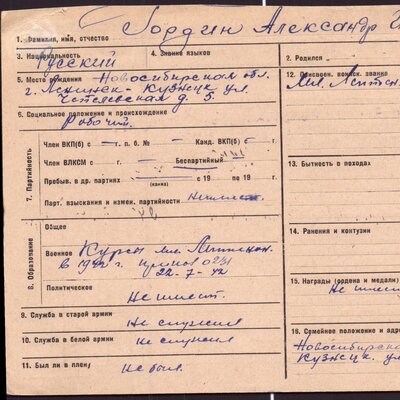 1. Фамилия, имя, отчество Гордин Александр
3. Национальность Русский
4. Знание языков
2. Родился
5. Место рождения Новосибирская обл.
г. Ленинск-Кузнецк ул.
д. 5
12. Присвоен. воинск. звание
Мл. Лейтен
6. Социальное положение и происхождение
Рабочий
7. Партийность
Член ВКП(б) с г. п. б. № Канд. ВКП(б) с г.
Член ВЛКСМ с г. Беспартийный
Пребыв. в др. партиях с 19 по 19 г.
(каких)
Парт. взыскания и измен. партийности
13. Бытность в походах
8. Образование
Общее
Военное Курсы мл. Лейтенан.
в 1942 г. приказ 0231
22-7-42
Политическое
Не имеет.
14. Ранения и контузии
15. Награды (ордена и медали)
Не имеет
9. Служба в старой армии
Не служил
10. Служба в белой армии
Не служил
11. Был ли в плену
Не был.
16. Семейное положение и адрес
Новосибирская
Кузнецк. ул